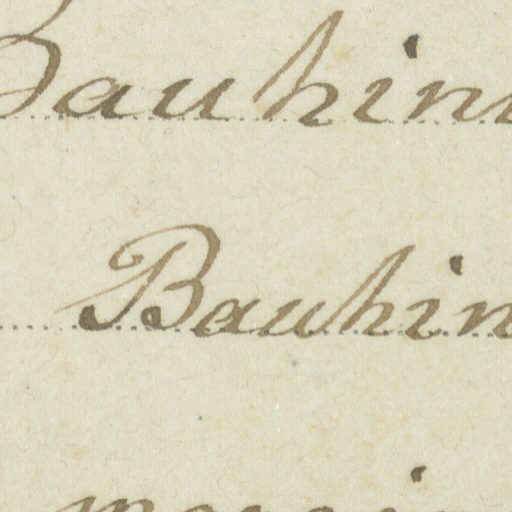 Bauhin
Bauhin